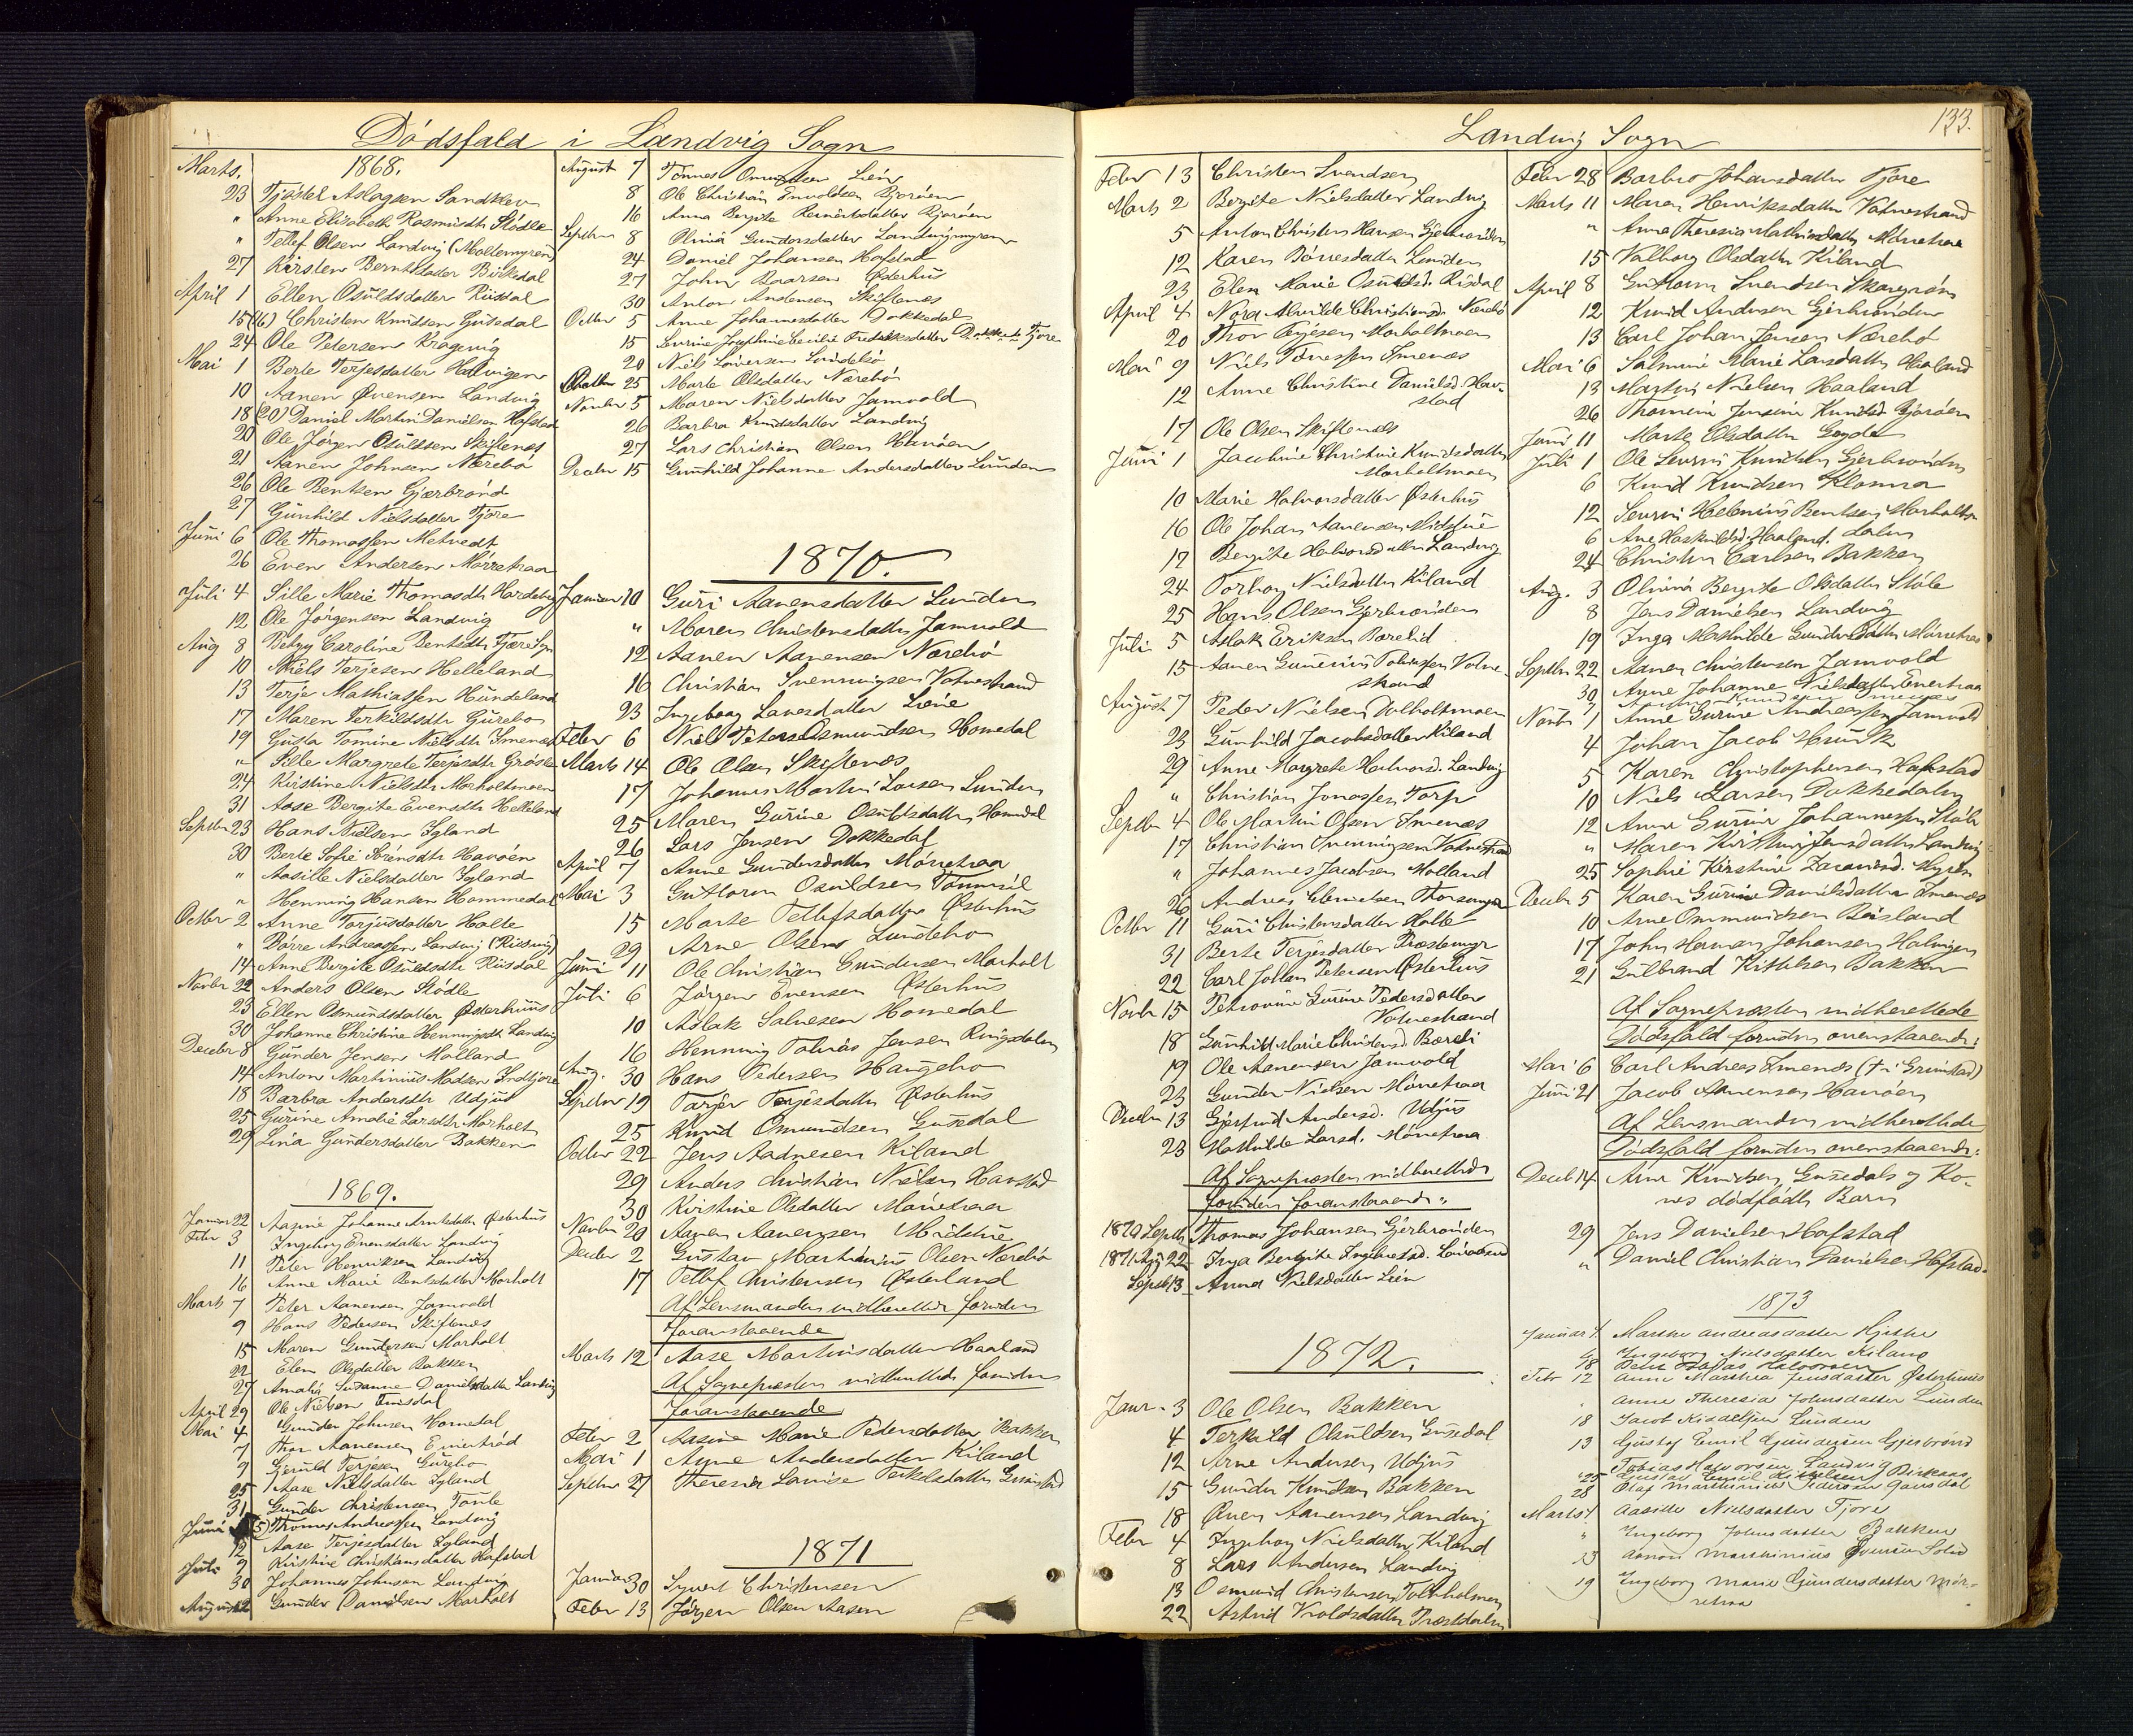 Dödsfald i Landvig Sogn
Marts. 1868.
23 Tjøstel Aslagsen Sandklev
" Anne Elisabeth Rasmusdtr Stödle
" Tellef Olsen Landvig (Moltemyren)
27 Kirsten Berntsdatter Birkedal
April 1 Ellen Osuldsdatter Riisdal
15 (16) Christen Knudsen Gusedal
24 Ole Petersen Kragevig
Mai 1 Berte Terjesdatter Halvigen
10 Aanen Øvensen Landvig
18 (20) Daniel Martin Danielsen Hafstad
20 Ole Jörgen Osuldsen Skiftenes
21 Aanen Johnsen Nærebö
26 Ole Bentsen Gjærbrönd
27 Gunhild Nielsdatter Tjore
Juni 6 Ole Thomassen Metvedt
26 Even Andersen Mörretraa
Juli 4 Sille Marie Thomasdtr
12 Ole Jörgensen Landvig
Aug 8 Betzy Caroline Bentsdtr
10 Niels Terjesen Helleland
13 Terje Mathiassen Hundeland
17 Maren Terkildsdtr Gurebo
19 Gusta Tomine Nielsdtr Imenes
" Sille Margrete Terjesdtr
24 Kirstine Nielsdtr Morholtmoen
31 Aase Bergite Evensdtr Helleland
Septbr 23 Hans Nielsen Igland
30 Berte Sofie Sörensdtr Havöen
" Aasille Nielsdatter Igland
" Henning Hansen Hommedal
Octbr 2 Anne Torjusdatter Holte
" Börre Andreassen Landvig
14 Anne Bergite Osuldsdtr Riisdal
Novbr 22 Anders Olsen Stödle
23 Ellen Osmundsdatter Østerhuus
30 Johanne Christine Henningsdtr Landvig
Decbr 8 Gunder Jensen Molland
14 Anton Martinius Madsen Indtjore
18 Barbra Andersdtr Udjus
25 Gurine Amalie Larsdtr Morholt
29 Lina Gundersdatter Bakken
1869.
Januar 22 Aasine Johanne Arntsdatter Østerhus
Febr 3 Ingeborg Evensdatter Landvig
11 Peter Henriksen Landvig
16 Anne Marie Bentsdatter Morholt
Marts 7 Peter Aanensen Jamvold
9 Hans Pedersen Skiftenes
15 Maren Gundersen Morholt
22 Elen Olsdatter Bakken
27 Amalia Susanne Danielsdatter Landvig
April 29 Ole Nielsen
Mai 4 Gunder Johnsen Homedal
7 Thor Aanensen
9 Gjeruld Terjesen Gurebo
25 Aase Nielsdatter Igland
31 Gunder Christensen
Juni (5) Thomas Andreassen Landvig
12 Aase Terjesdatter Igland
Juli 9 Kirstine Christiansdatter Hafstad
30 Johannes Johnsen Landvig
August 12 Gunder Danielsen Morholt
August 7 Tönnes Omundsen Lien
8 Ole Christian Envoldsen Bjoröen
16 Anna Bergite Reinertsdatter Bjoröen
Septbr 8 Olivia Gundersdatter Landvigmyren
24 Daniel Johansen Hafstad
27 John Baarsen Østerhus
30 Anton Andersen Skiftenes
Octbr 5 Anne Johannesdatter Dokkedal
15 Sevrine Josephine Cecilie Fredriksdatter Tjore
20 Niels
Octbr 25 Marte Olsdatter Nærebö
Novbr 5 Maren Nielsdatter Jamvold
26 Barbra Knudsdatter Landvig
27 Lars Christian Olsen Havöen
Decbr 15 Gunhild Johanne Andersdatter Lunden
1870.
Januar 10 Guri Aanensdatter Lunden
" Maren Christensdatter Jamvold
12 Aanen Aanensen Nærebö
16 Christian Svenningsen Vatnestrand
23 Ingeborg Larsdatter Liene
Febr 6 Niels Peters Osmundsen Homedal
Marts 14 Ole Olsen Skiftenes
17 Johannes Martin Larsen Lunden
25 Maren Gurine Osuldsdatter Homedal
26 Lars Jensen Dokkedal
April 7 Anne Gundersdatter Mörretraa
Mai 3 Guttorm Osuldsen
15 Marte Tellefsdatter Østerhus
29 Arne Olsen Lundebo
Juni 11 Ole Christian Gundersen Morholt
Juli 6 Jörgen Evensen Østerhus
10 Aslak Salvesen Homedal
16 Henning Tobias Jensen Ringdalen
Aug. 30 Hans Pedersen Haugebo
Septbr 19 Tarjer Terjesdatter Østerhus
25 Knud Omundsen Gusedal
Octbr 22 Jens Aadnesen Kiland
29 Anders Christian Nielsen Havstad
30 Kirstine Olsdatter Mörretraa
Novbr 20 Aanen Aanensen Midstue
Decbr 2 Gustav Martinius Olsen Nærebö
17 Tellef Christensen Østerland
Af Lensmanden indberettede foruden
foranstaaende
Marts 12 Aase Martinsdatter Haaland
Af Sognepræsten indberettede foruden
foranstaaende
Febr 2 Aasine Marie Pedersdatter Bakken
Mai 1 Anne Andersdatter Kiland
Septbr 27 Theresia Lovise Terkelsdatter
1871
Januar 30 Syvert Christensen
Febr 13 Jörgen Olsen Aasen
Landvig Sogn
133.
Febr 13 Christen Svendsen
Marts 2 Bergite Nielsdatter Landvig
5 Anton Christen Hansen Gjerbrönden
12 Karen Börresdatter Lunden
23 Elen Marie Osuldsd. Risdal
April 4 Nora Alvilde Christiansd. Nærebö
20 Thor Terjesen Morholtmoen
Mai 9 Niels Tönnessen Imenes
12 Anne Christine Danielsd. Hav-
stad
17 Ole Olsen Skiftenes
Juni 1 Jacobine Christine Knudsdatter
Morholtmoen
10 Marie Halvorsdatter Østerhus
16 Ole Johan Aanensen Midstue
17 Bergite Halvorsdatter Landvig
24 Torborg Nielsdatter Kiland
25 Hans Olsen Gjerbrönden
Juli 5 Aslak Eriksen Bærelid
15 Aanen Gunerius Tobiassen Vatne-
strand
August 7 Peder Nielsen
23 Gunhild Jacobsdatter Kiland
29 Anne Margrete Halvorsd. Landvig
" Christian Jonassen Torp
Septbr 4 Ole Martin Olsen Imenes
17 Christian Svenningsen Vatnestrand
" Johannes Jacobsen Molland
26 Andreas
Octbr 11 Guri Christensdatter Holte
31 Berte Terjesdatter Præstemyr
22 Carl Johan Petersen Østerhus
Novbr 15 Petrovine Gurine Pedersdatter
Vatnestrand
18 Gunhild Marie Christensd. Bæreli
19 Ole Aanensen Jamvold
23 Gunder Nielsen Mörretraa
Decbr 13 Gjertrud Andersd. Udjus
23 Mathilde Larsd. Mörretraa
Af Sognepræsten indberettede
foruden foranstaaende:
1870 Septb Thomas Johansen Gjerbrönden
1871 Aug 22 Inga Bergite Ingebretsd.
Septb 13 Anna Nielsdatter Lien
1872.
Janr. 3 Ole Olsen Bakken
4 Terkild Osuldsen Gusedal
12 Arne Andersen Udjus
15 Gunder Knudsen Bakken
18 Øven Aanensen Landvig
Febr 4 Ingeborg Nielsdatter Kiland
8 Lars Andersen Landvig
13 Osmund Christensen Tolvholmen
22 Astrid Vroldsdatter Præstdalen
Febr 28 Barbro Johansdatter Tjore
Marts 11 Maren Henriksdatter Vatnestrand
" Anne Theresia Mathiasdatter Mörretraa
15 Valborg Olsdatter Kiland
April 8 Guttorm Svendsen
12 Knud Andersen Gjerbrönden
13 Carl Johan Jensen Nærebö
Mai 6 Salmine Marie Larsdatter Haaland
13 Martin Nielsen Haaland
26 Thomine Jensine Knudsd. Bjoröen
Juni 11 Marte Olsdatter
Juli 1 Ole Severin Knudsen Gjerbrönden
6 Knud Knudsen Klomra
12 Severin Helenius Bentsen Morholt
6 Ane Haskuldsd. Haaland. dalen
24 Christen Carlsen Bakken
Aug. 3 Olivia Bergite Olsdatter Støle
8 Jens Danielsen Landvig
19 Inga Mathilde Gundersdatter Mörretraa
Septbr 22 Aanen Christensen Jamvold
30 Anne Johanne Nielsdatter
Novbr 1 Anne Gurine Andreassen Jamvold
4 Johan Jacob
5 Karen Christophersen Hafstad
10 Niels Larsen Dokkedalen
12 Anne Gurine Johannessen Støle
" Maren Kirstine Jensdatter Landvig
25 Sophie Kirstine
Decbr 5 Karen Gurine Danielsdatter Imenes
10 Arne Ommundsen Beisland
17 John Herman Johansen Halvigen
21 Gulbrand Kittelsen Bakken
Af Sognepræsten indberettede
Dødsfald foruden ovenstaaende:
Mai 6 Carl Andreas Imenes († i Grimstad)
Juni 21 Jacob Aanensen Havöen
Af Lensmanden indberettede
Dødsfald foruden ovenstaaende:
Decb 14 Arne Knudsen, Gusedals og Ko-
nes dødfödte Barn
29 Jens Danielsen Hafstad
" Daniel Christian Danielsen Hafstad.
1873
Januar 1. Marthe Andreasdatter
4 Ingeborg Nielsdatter Kiland
18 Halvorsen
Febr 12 Anne Marthea Jensdatter Østerhuus
. Anne Theresia Johnsdatter Lunden
18 Jacob Lunden
13 Gustaf Emil Gundersen Gjerbrönd
Tobias Halvorsen Landvig
25 Gustav Emil Birkenes
28 Olaf Marthinius Pedersen
Marts 1. Aasille Nielsdatter Tjore
" Ingeborg Johnsdatter Bakken
13 Marthinius
19 Ingeborg Marie Gundersdatter Mör-
retraa